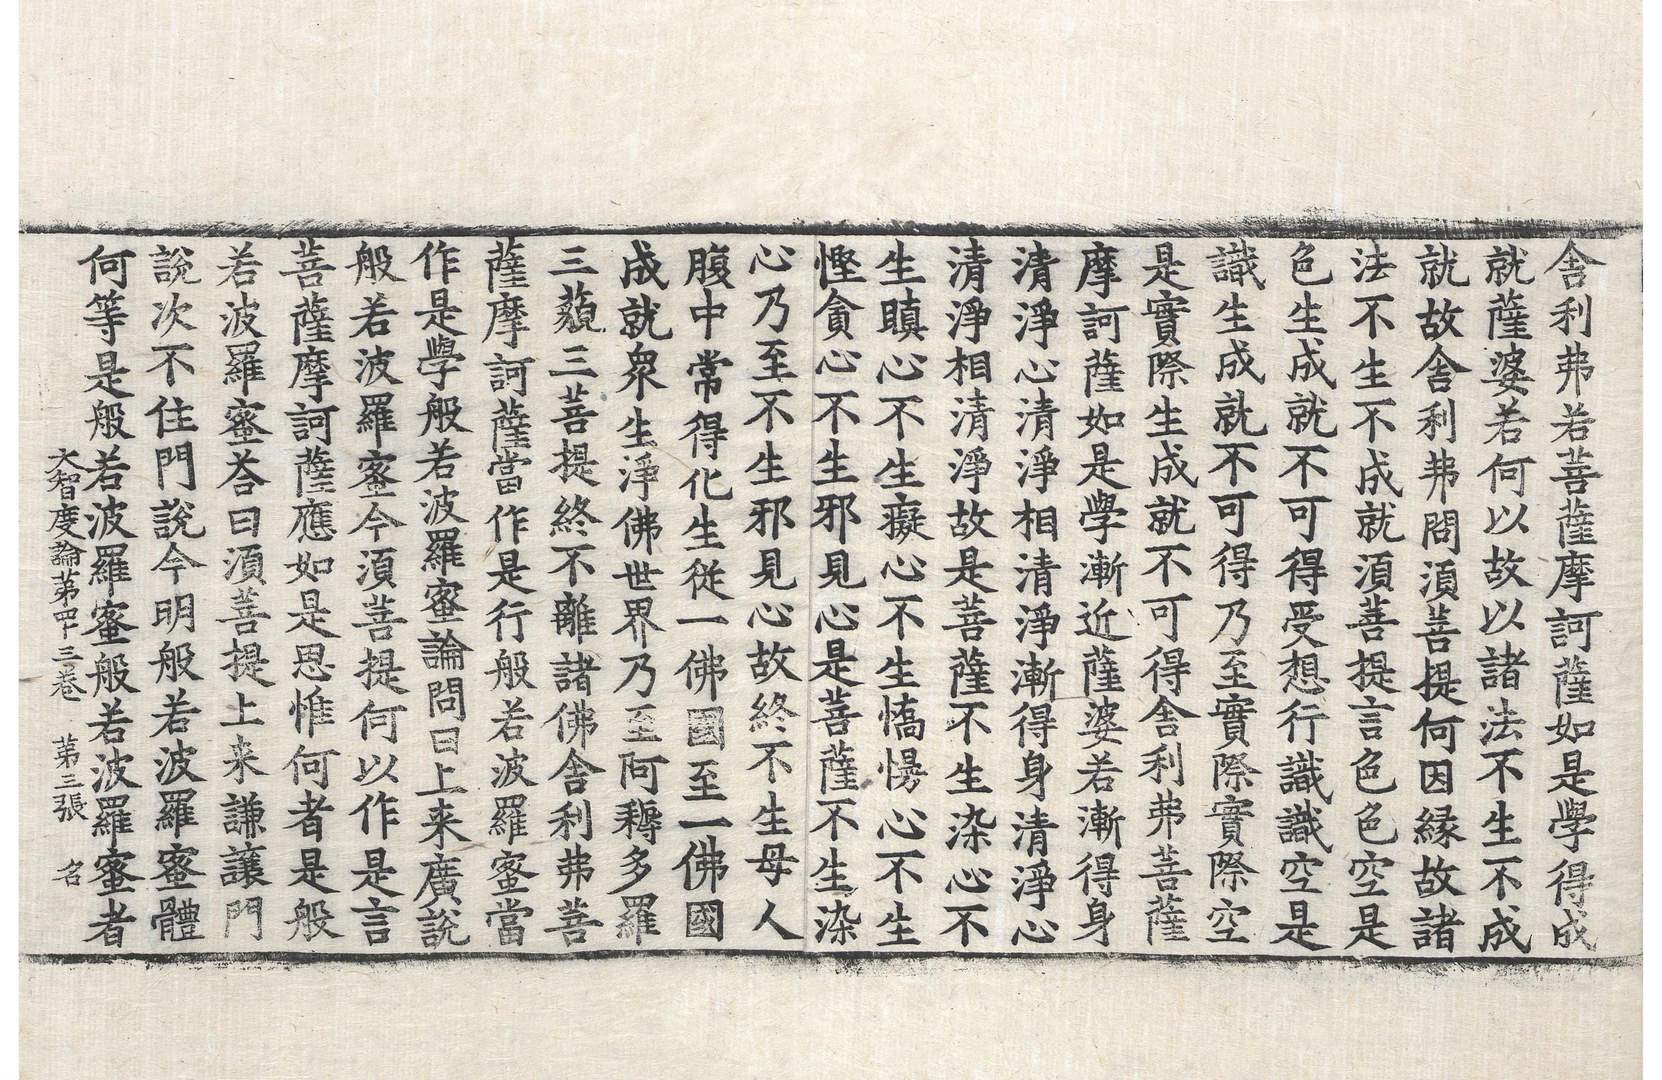 舎利弗若菩薩摩訶薩如是學得成
就薩婆若何以故以諸法不生不成
就故舎利弗問湏菩提何因縁故諸
法不生不成就湏菩提言色色空是
色生成就不可得受想行識識空是
識生成就不可得乃至實際實際空
是實際生成就不可得舎利弗菩薩
摩訶薩如是學漸近薩婆若漸得身
清淨心清淨相清淨漸得身清淨心
清淨相清淨故是菩薩不生染心不
生瞋心不生癡心不生憍慢心不生
慳貪心不生邪見心是菩薩不生染
心乃至不生邪見心故終不生母人
腹中常得化生從一佛國至一佛國
成就衆生淨佛世界乃至阿耨多羅
三藐三菩提終不離諸佛舎利弗菩
薩摩訶薩當作是行般若波羅蜜當
作是學般若波羅蜜論問曰上来廣說
般若波羅蜜今湏菩提何以作是言
菩薩摩訶薩應如是思惟何者是般
若波羅蜜荅曰湏菩提上来謙讓門
說次不住門說今明般若波羅蜜體
何等是般若波羅蜜般若波羅蜜者
大智度論第四十三卷 第三張 名